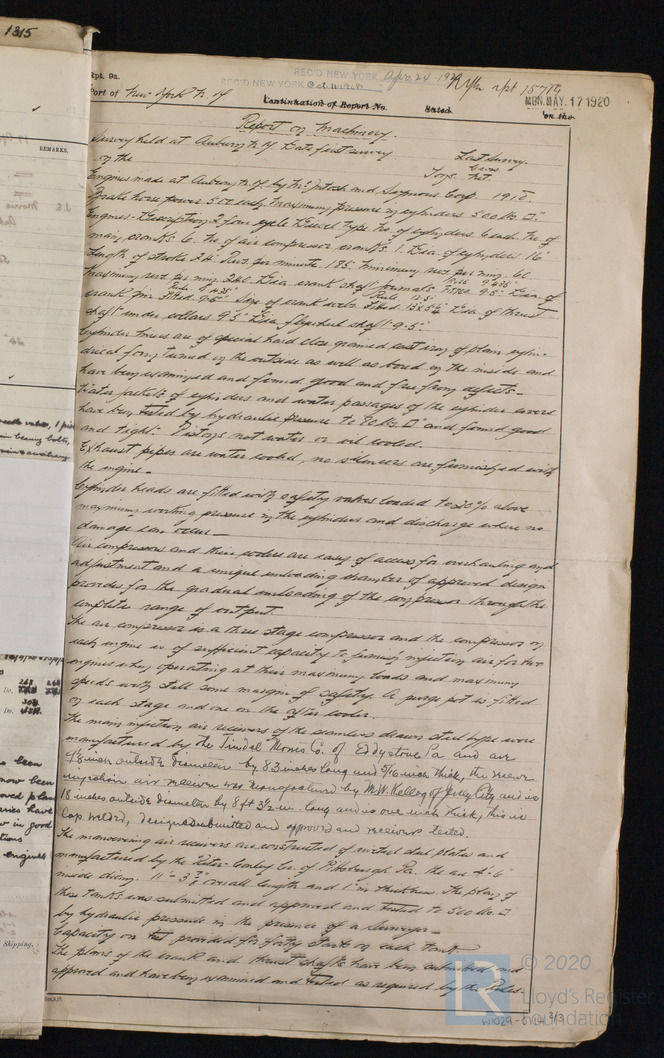 1315
REC'D NEW YORK Apr. 24 1920
REC'D NEW YORK Oct. 11 1918
N.Yk rpt 15779
MON. MAY. 17 1920
Rpt. 9a.
Port of New York N.Y
Continuation of Report No.
dated
on the
Report on Machinery.
Survey held at Auburn N.Y Date first survey
Last Survey.
on the
Tons
Gross.
Net.
Engines made at Auburn N.Y by McIntosh and Seymour Corp. 1918.
Brake horse power 500 each, maximum pressure in cylinders 500 lbs □"
Engines - Description 2 four cycle Diesel type No. of cylinders 6 each No. of
main cranks 6. No. of air compressor cranks. 1. Dia. of cylinders 16"
Length of stroke 24" Revs per minute 185. Minimum revs per min. 60
Maximum revs per min. 240 Dia. crank shaft journals Fitted 9.5" Dia. of
crank pin Fitted 9.5" Size of crank webs Fitted Dia. of thrust
shaft under collars 9.5" Dia. of
Cylinder liners are of special hard close grained cast iron of plain cylin-
drical form turned on the outside as well as bored on the inside and
have been examined and found good and free from defects.
Water jackets of cylinders and water passages of the cylinder covers
have been tested by hydraulic pressure to 90 lbs. □" and found good
and tight. Pistons not water or oil cooled.
Exhaust pipes are water cooled, no silencers are furnished with
the engine.
Cylinder heads are fitted with safety valves loaded to 20% above
maximum working pressure in the cylinders and discharge where no
damage can occur.
Air compressors and their coolers are easy of access for overhauling and
adjustment and a unique unloading chamber of approved design
provides for the gradual unloading of the compressor through the
complete range of output
The air compressor is a three stage compressor and the compressor on
each engine is of sufficient capacity to furnish injection air for two
engines when operating at their maximum loads and maximum
speeds with still some margin of safety. A purge pot is fitted
on each stage and one on the after cooler.
The main injection air receivers of the seamless drawn steel type were
manufactured by the Tindel Morris Co. of Eddystone Pa and are
inch outside diameter by 83 inches long and 5/16 inch thick, the reserve
injection air receiver was manufactured by M.W. Kellog of Jersey City and is
18 inches outside diameter by 8 ft 3½ in. long and is one inch thick, this is
lap welded, design submitted and approved and receiver tested.
The maneuvering air receivers are constructed of riveted steel plates and
manufactured by the Riter-Conley Co. of Pittsburgh Pa. the are 4'-6"
inside diam. 11'-3 overall length and 1" in thickness. The plans of
these tanks was submitted and approved and tested to 500 lbs. □
by hydraulic pressure in the presence of a Surveyor.
Capacity on test provided for forty starts on each tank
The plans of the crank and thrust shafts have been submitted and
approved and have been examined and tested as required by the Rules.
REMARKS.
Shipping.
© 2020
Lloyd's Register
Foundation
W1029-0142 3/3